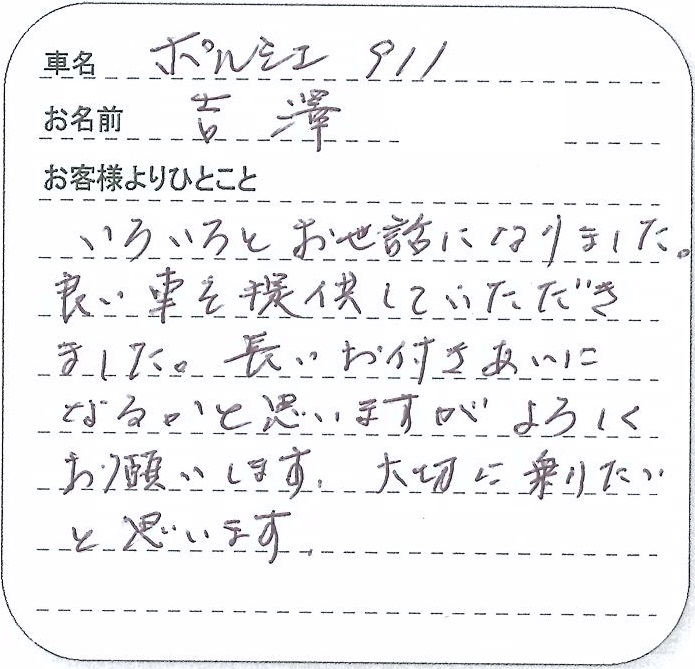 車名 ポルシェ 911
お名前 吉澤
お客様よりひとこと
いろいろとお世話になりました。
良い車を提供していただだき
ました。長いお付きあいに
なるかと思いますがよろしく
お願いします。大切に乗りたい
と思います。